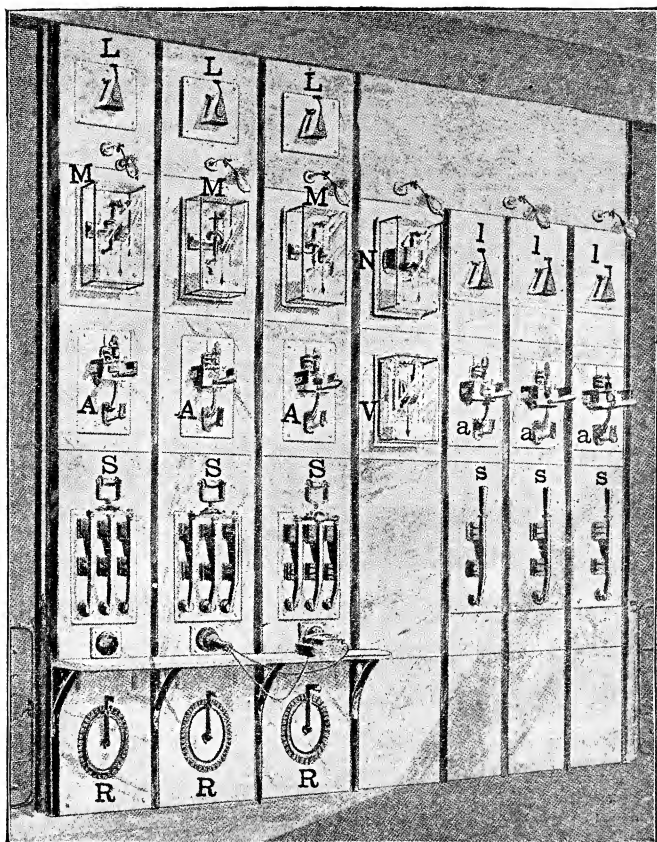 L L L
M M M
N l l l
A A A V a a a
S S S s s s
R R R